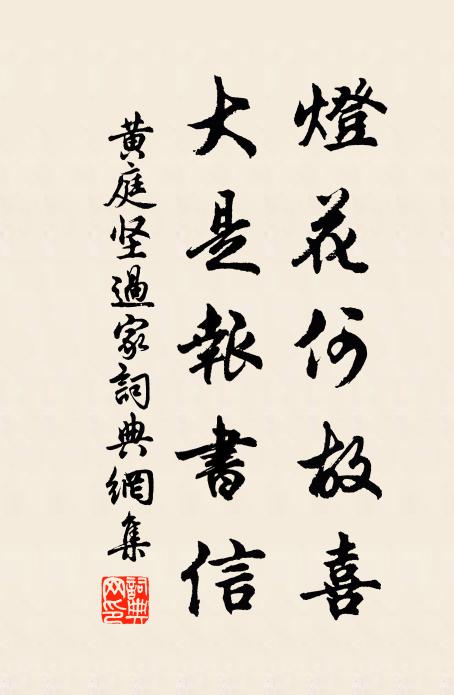 燈花何故喜
大是報書信
黃庭坚過家詞典網集
詞典網印